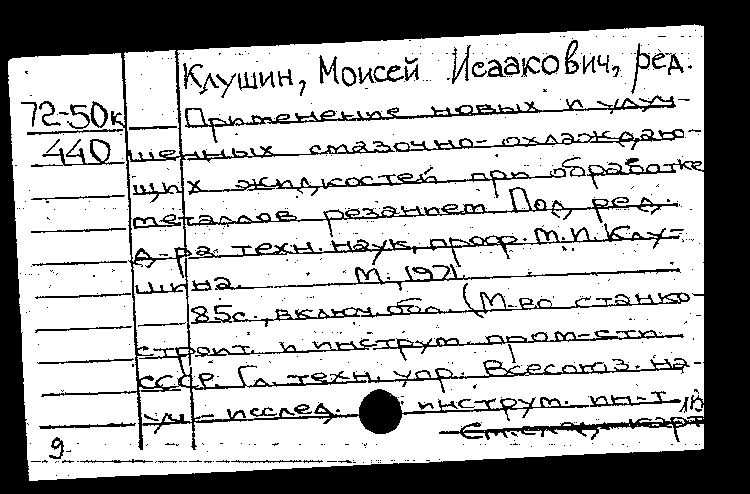 Клушин, Моисей Исаакович, ред.
72-50к
440
Применение новых и улуч-
шенных смазочно-охлаждаю-
щих жидкостей при обработке
металлов резанием. Под ред.
д-ра техн. наук, проф. М.И. Клу-
шина. М., 1971.
85с., включ. обл. (М-во станко-
строит. и инструм. пром-сти
СССР. Гл. техн. упр. Всесоюз. на-
уч-исслед. инструм. ин-т
См. след. карт
9